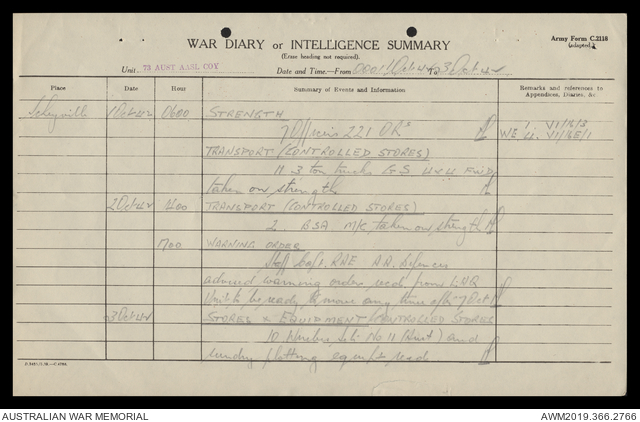 WAR DIARY or INTELLIGENCE SUMMARY
Army Form C.2118
(Erase heading not required).
(adapted)
Unit 73 AUST AASL COY Date and Time.—From 0001/1Oct42 To 3Oct42
Place Date Hour Summary of Events and Information Remarks and references to Appendices, Diaries, &c.
1Oct42 0600 STRENGTH
7 Officers 221 ORs
WE
TRANSPORT (CONTROLLED STORES)
3 ton trucks G.S. 4x4 Ford
taken on strength
2Oct42 1400 TRANSPORT (CONTROLLED STORES)
2 BSA M/C taken on strength
1700 WARNING ORDER
Staff Capt. RAE AA Defences
advised warning order recd from LHQ
Unit to be ready to move any time after 7 Oct
3Oct42 STORES & EQUIPMENT (CONTROLLED STORES)
10 Wireless Sets No 11 (Aust) and
sundry plotting equipt recd
AUSTRALIAN WAR MEMORIAL AWM2019.366.2766